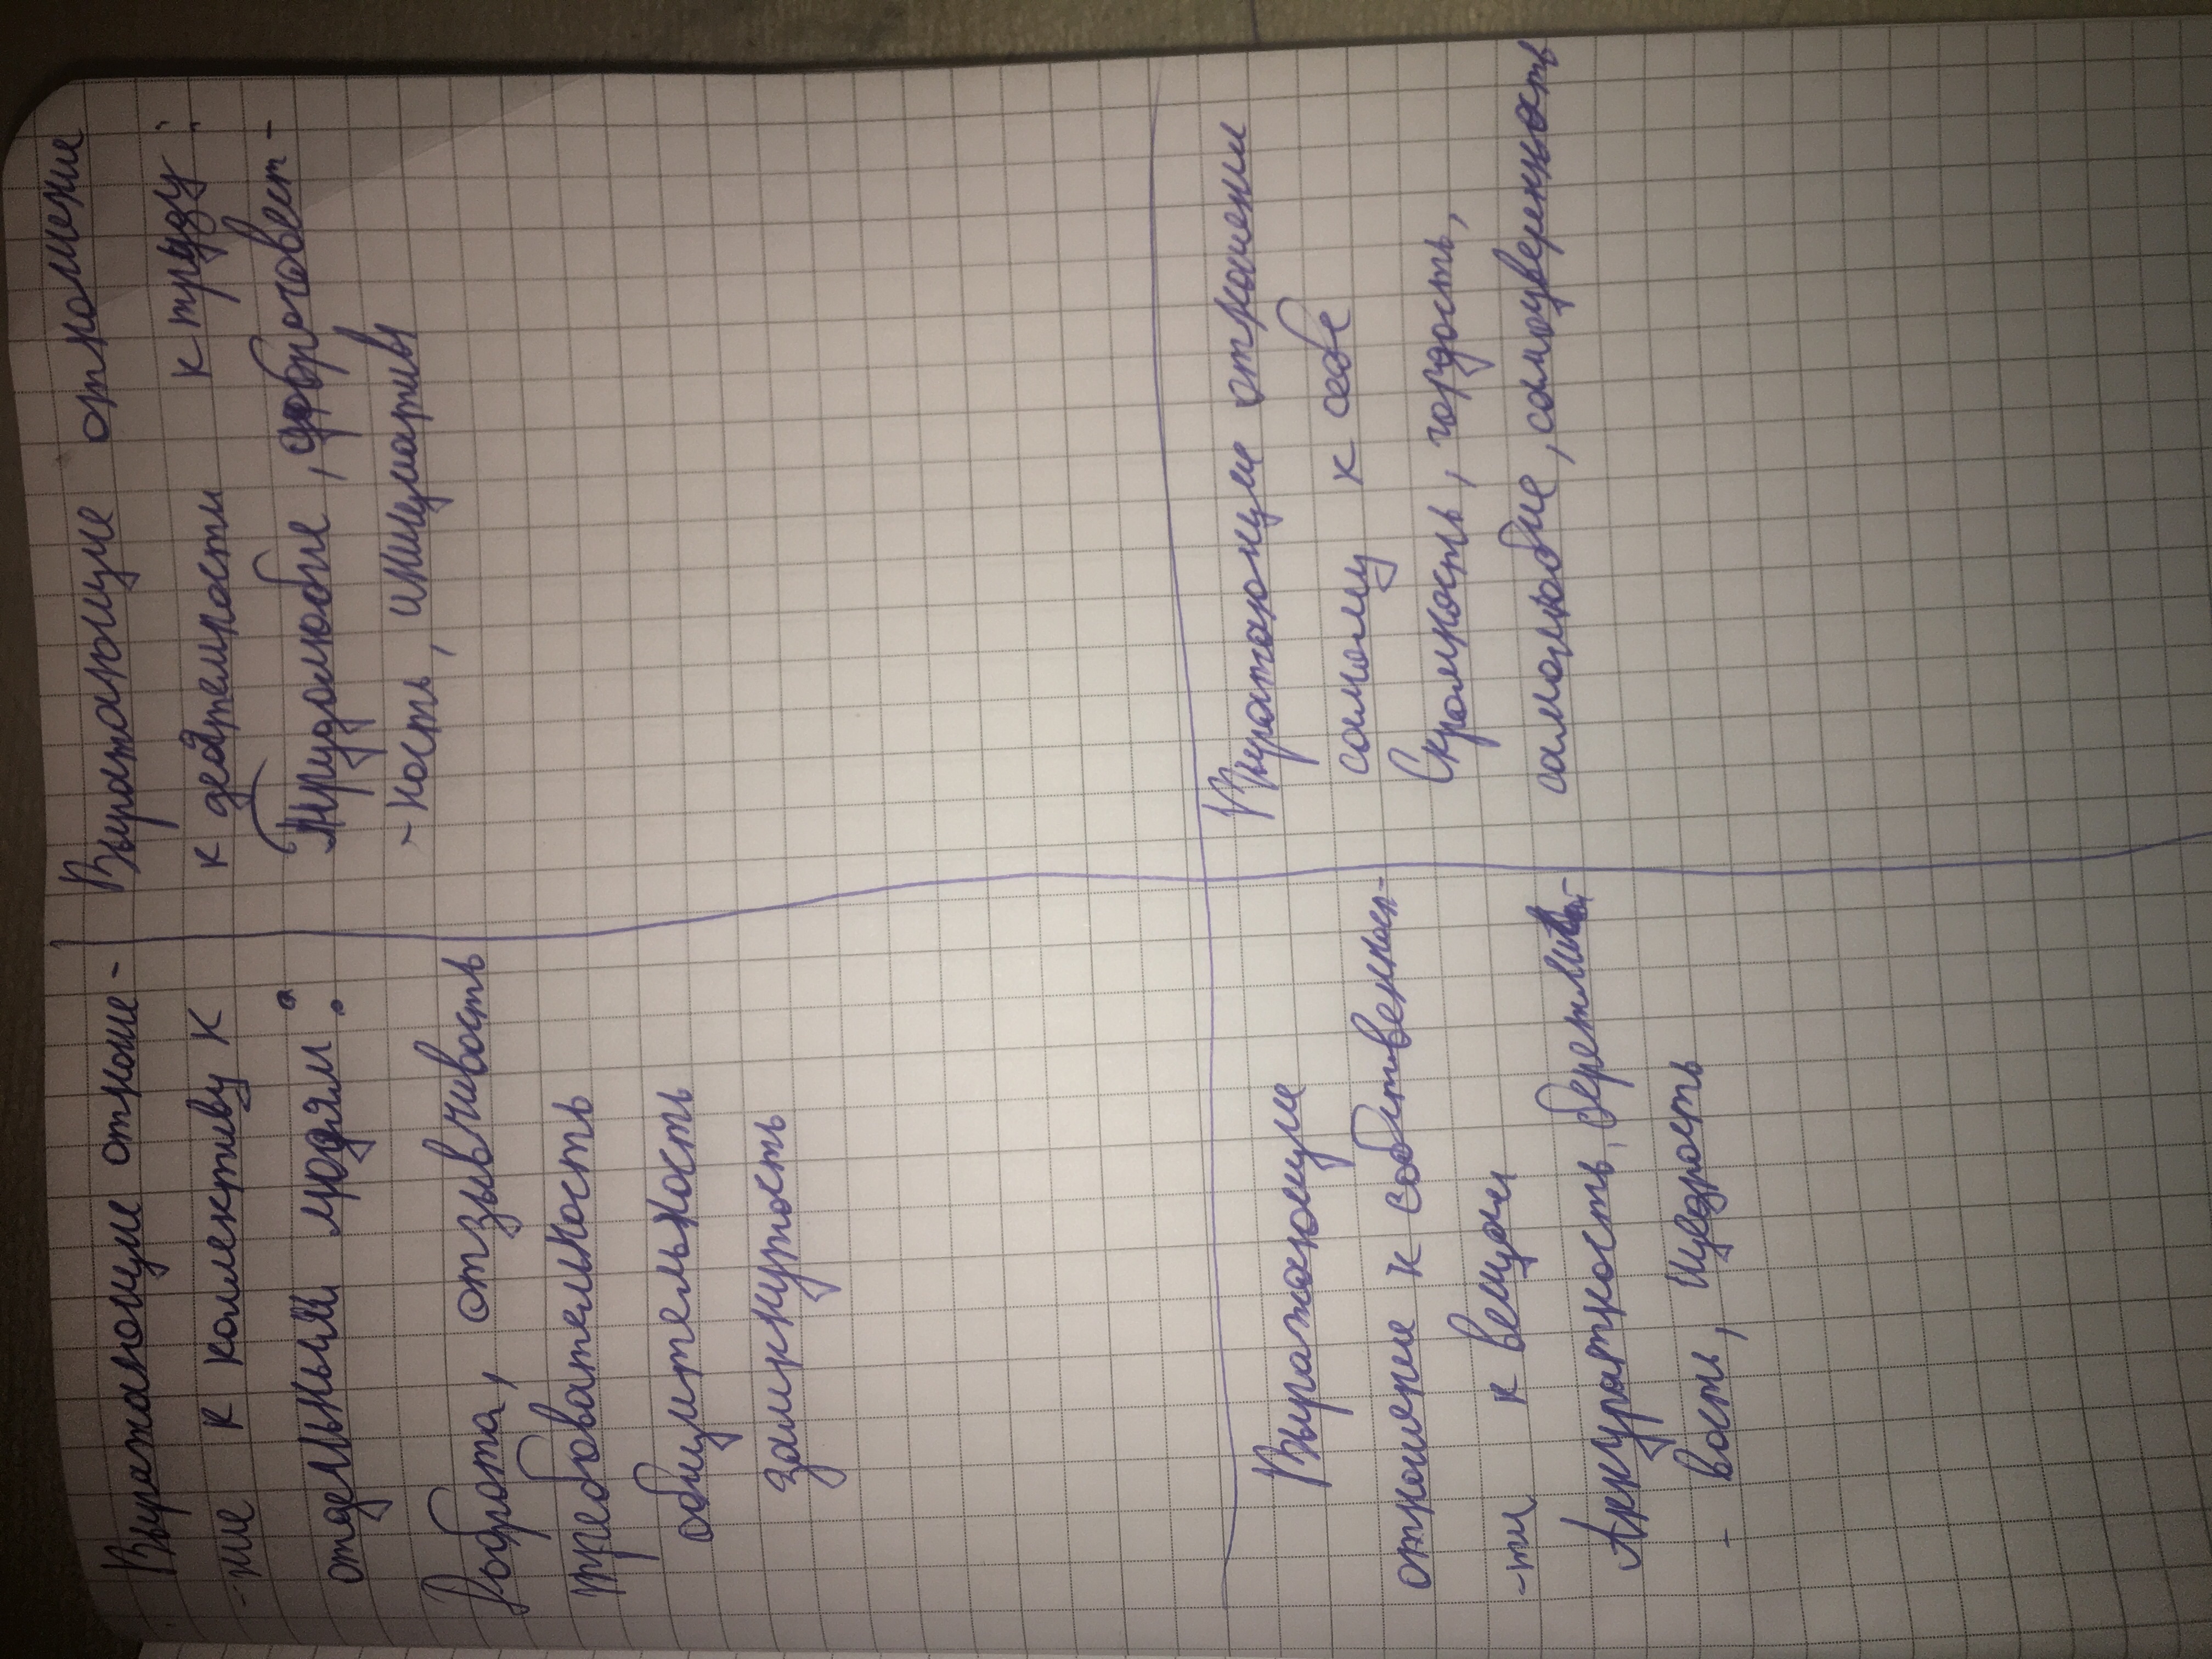 Выражающие отноше-
-ние к коллективу к
отдельным людям:
Доброта, отзывчивость
требовательность
общительность
замкнутость
Выражающие отношение
к деятельности к труду:
Трудолюбие, добросовест-
-ность, инициативы
Выражающие
отношение к собственнос-
-ти к вещам
Аккуратность, бережли
- вость, щедрость
Выражающие отношени
самому к себе
Скромность, гордость,
самолюбие, самоуверенность